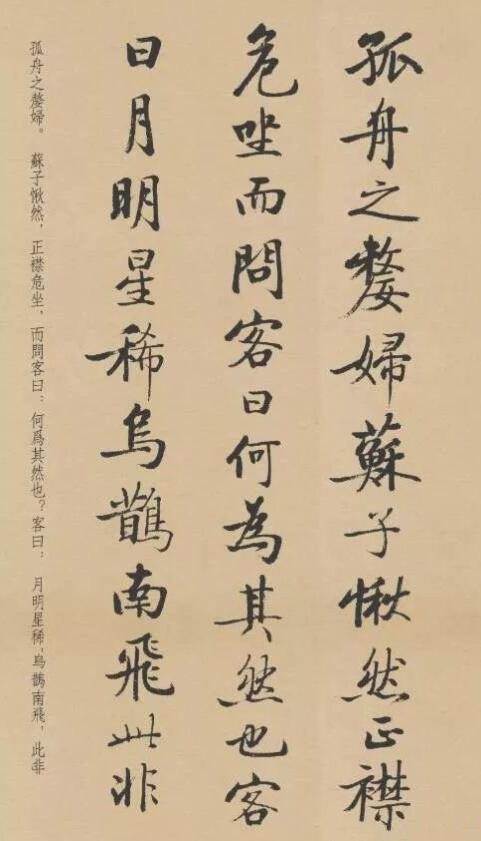 孤舟之嫠婦蘇子愀然正襟
危坐而問客曰何為其然也客
曰月明星稀烏鵲南飛此非
孤舟之嫠婦。蘇子愀然,正襟危坐,而問客曰:何爲其然也?客曰:月明星稀,烏鵲南飛,此非